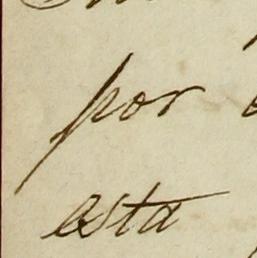 por
esta